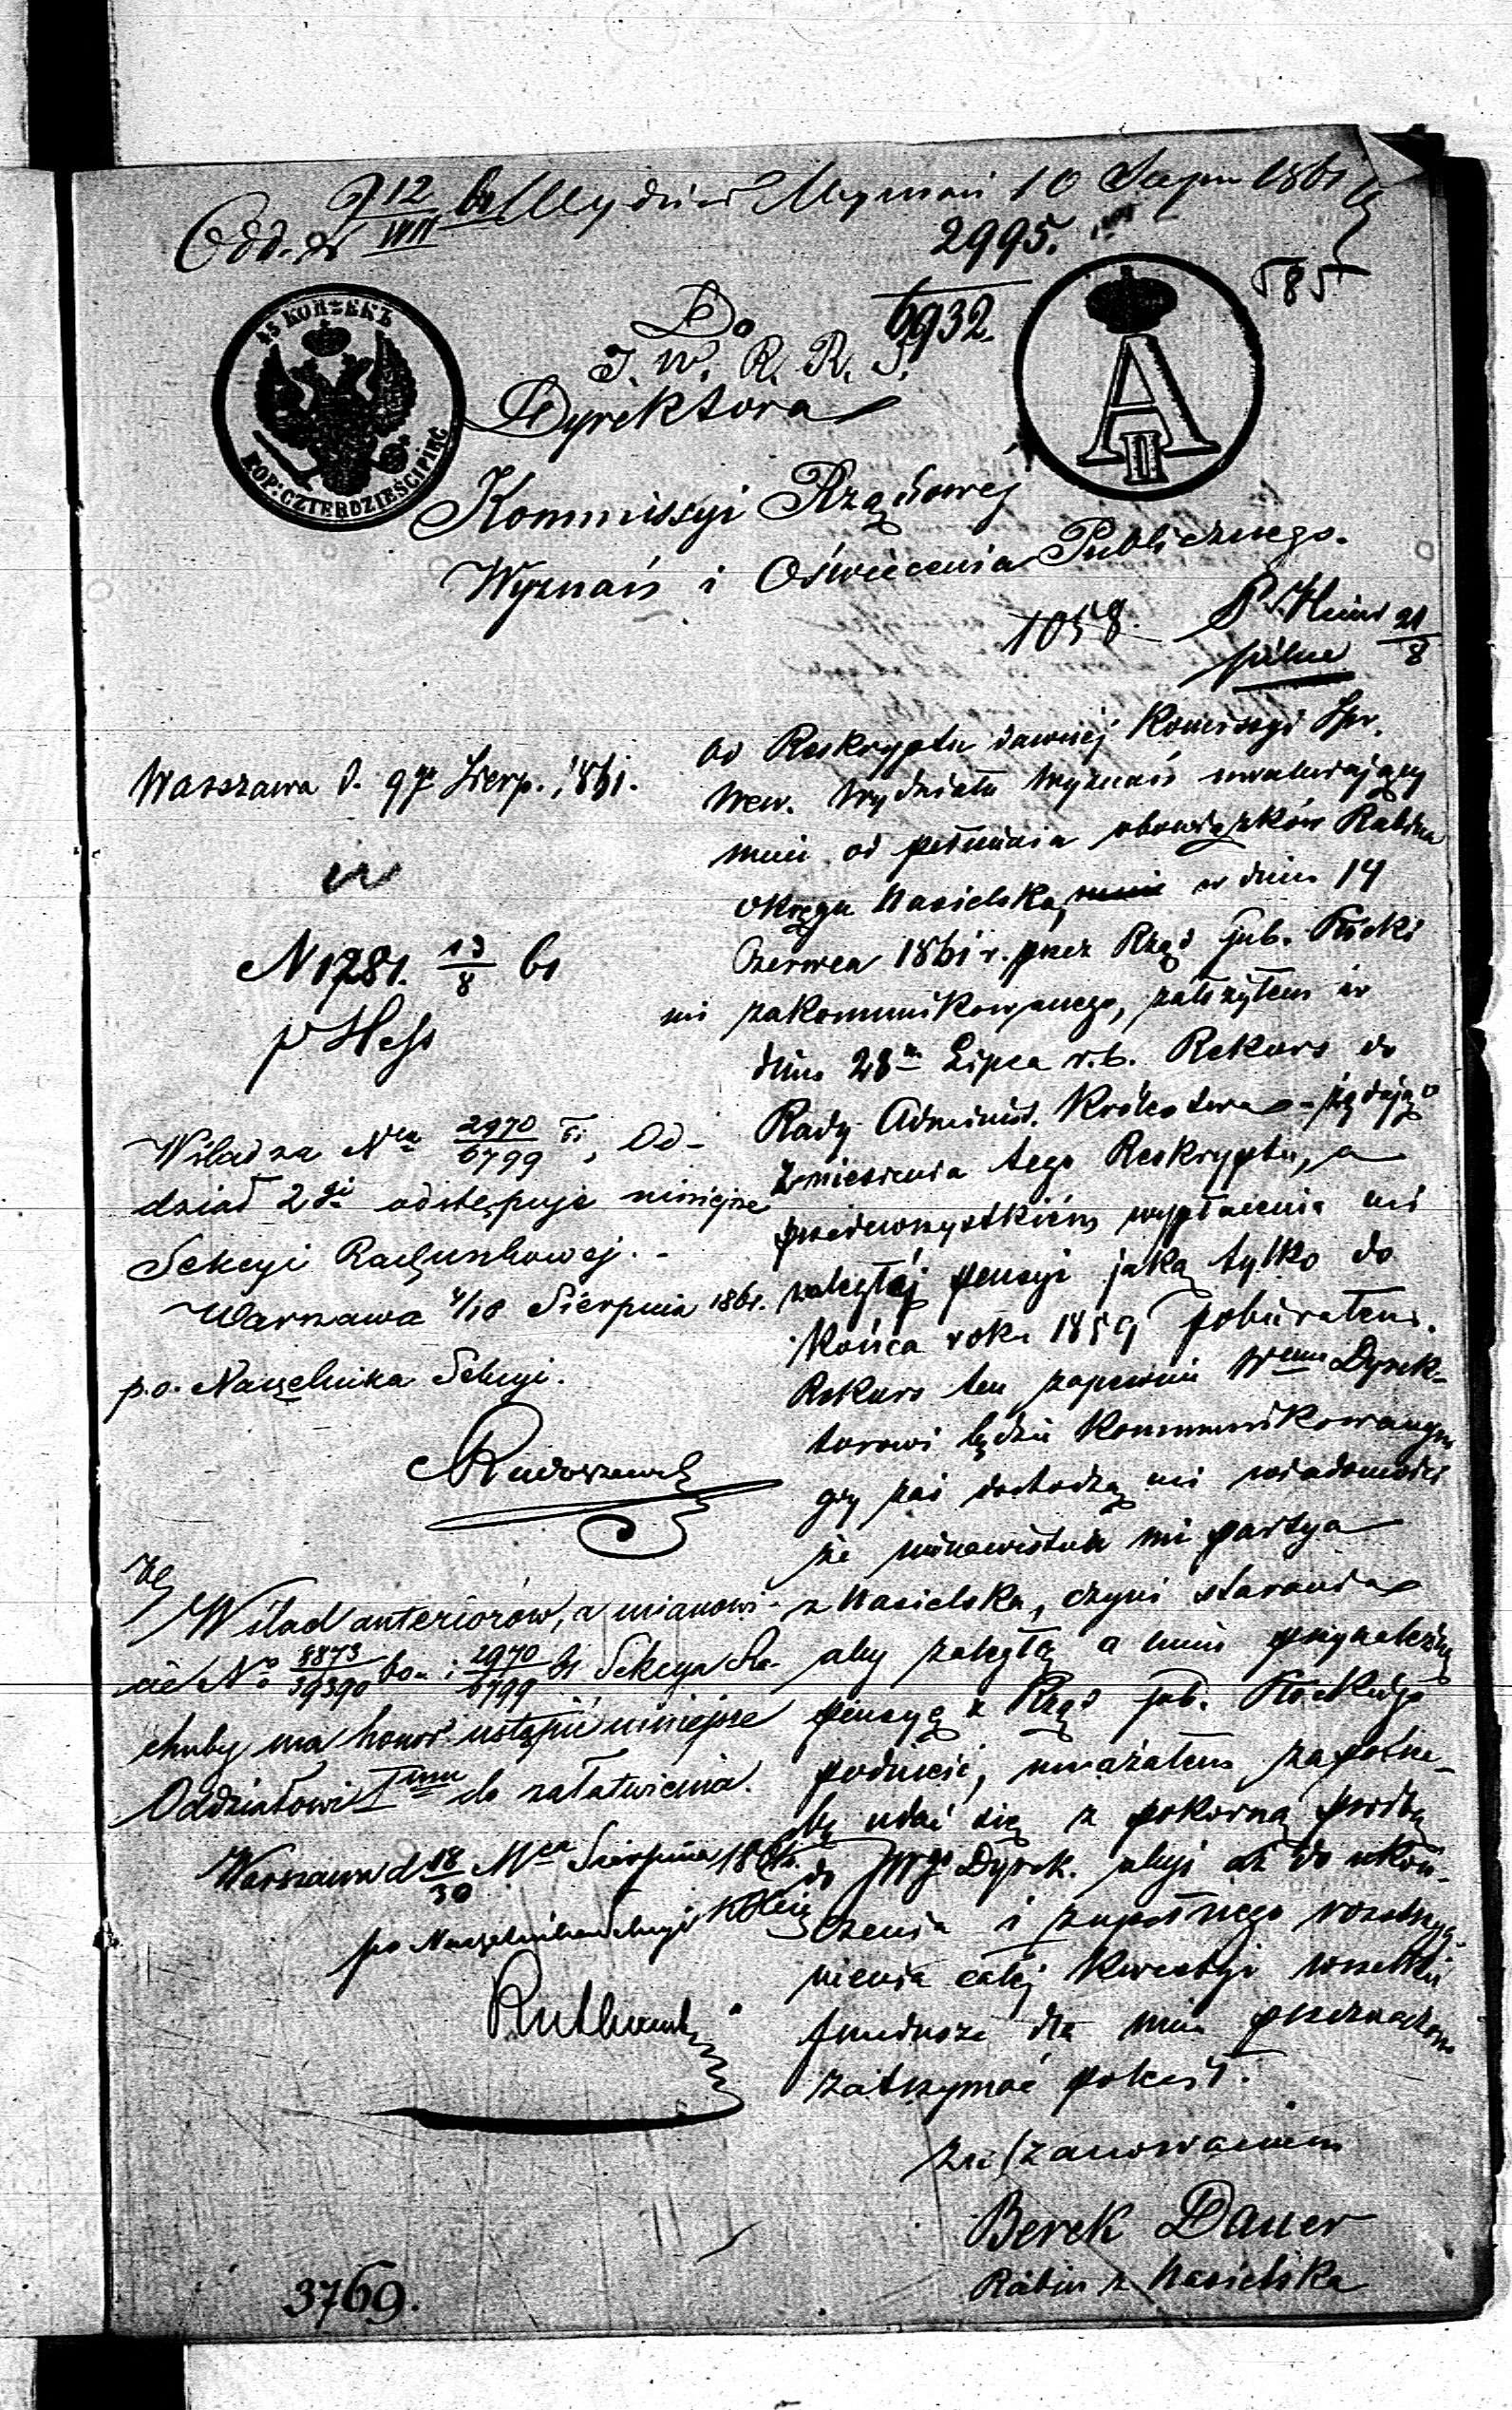 Odd. 12/VIII 61 Wydział Wyznań 10 Sierp 1861
2995.
6932.
585
45 КОПѢЕКЪ
KOP: CZTERDZIEŚCI PIĘĆ
A II
Do
J. W. R. R. S.
Dyrektora
Kommissyi Rządowej
Wyznań i Oświecenia Publicznego.
1058.
21/8
pilne
Warszawa d. 9go Sierp. 1861.
N 1781. 13/8 61
p Hess
W ślad za Nem 2970/6799 61, Od-
dział 2gi odstępuje niniejsze
Sekcyi Rachunkowej.
Warszawa 4/18 Sierpnia 1861.
p.o. Naczelnika Sekcyi.
W ślad anteriorów, a mianowi-
cie No 8873/39390 60 i 2970/6799 61 Sekcya Ra-
chuby ma honor ustąpić niniejsze
Oddziałowi Imu do załatwienia.
Warszawa d 18/30 Mca Sierpnia 1861.
po Naczelnika Sekcyi
3769.
Od Reskryptu dawnej Komissyi Spr.
Wew. Wydziału Wyznań uwalniający
mnie od pełnienia obowiązków Rabina
Okręgu Nasielska, w dniu 14
Czerwca 1861 r. przez Rząd Gub. Płocki
mi zakomunikowanego, założyłem w
dniu 28m Lipca r.b. Rekurs do
Rady Administ. Królestwa żądając
Zniesienia tego Reskryptu, a
przedewszystkiem wypłacenia mi
zaległej pensyi jaką tylko do
Końca roku 1859 pobierałem.
Rekurs ten zapewne Wmu Dyrek-
torowi będzie Kommunikowanym
gdy zaś dochodzą mi wiadomości
że nienawistna mi partya
z Nasielska, czyni starania
aby zaległą a mnie przynależną
pensyą z Rząd gub. Płockiego
podnieść, uważałem za potrze-
bę udać się z pokorną prośbą
do JWgo Dyrek. abyś aż do ukoń-
czenia i zupełnego rozstrzyg-
nienia całej Kwestyi wszelkie
fundusze dla mnie przeznaczone
zatrzymać polecił.
Z uszanowaniem
Berek Dauer
Rabin z Nasielska